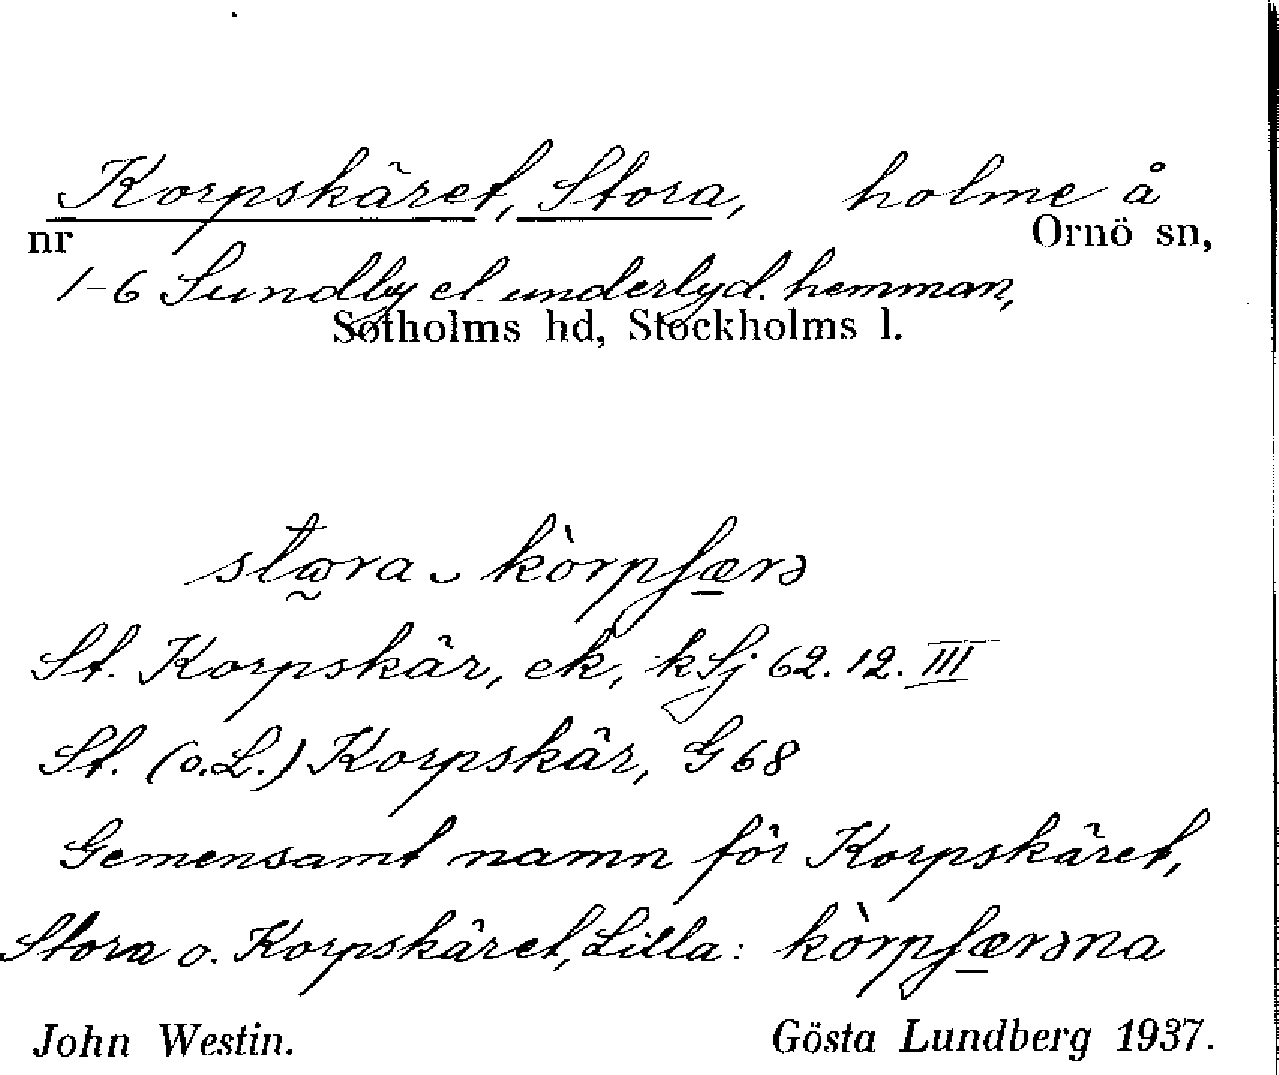 Korpskäret, Stora, holme å
nr Ornö sn,
1-6 Sundby el. underlyd. hemman,
Sotholms hd, Stockholms l.
St. Korpskär, ek, kSj 62.12.III
St. (o.L.) Korpskär, G 68
Gemensamt namn för Korpskäret,
Stora o. Korpskäret, Lilla:
John Westin. Gösta Lundberg 1937.